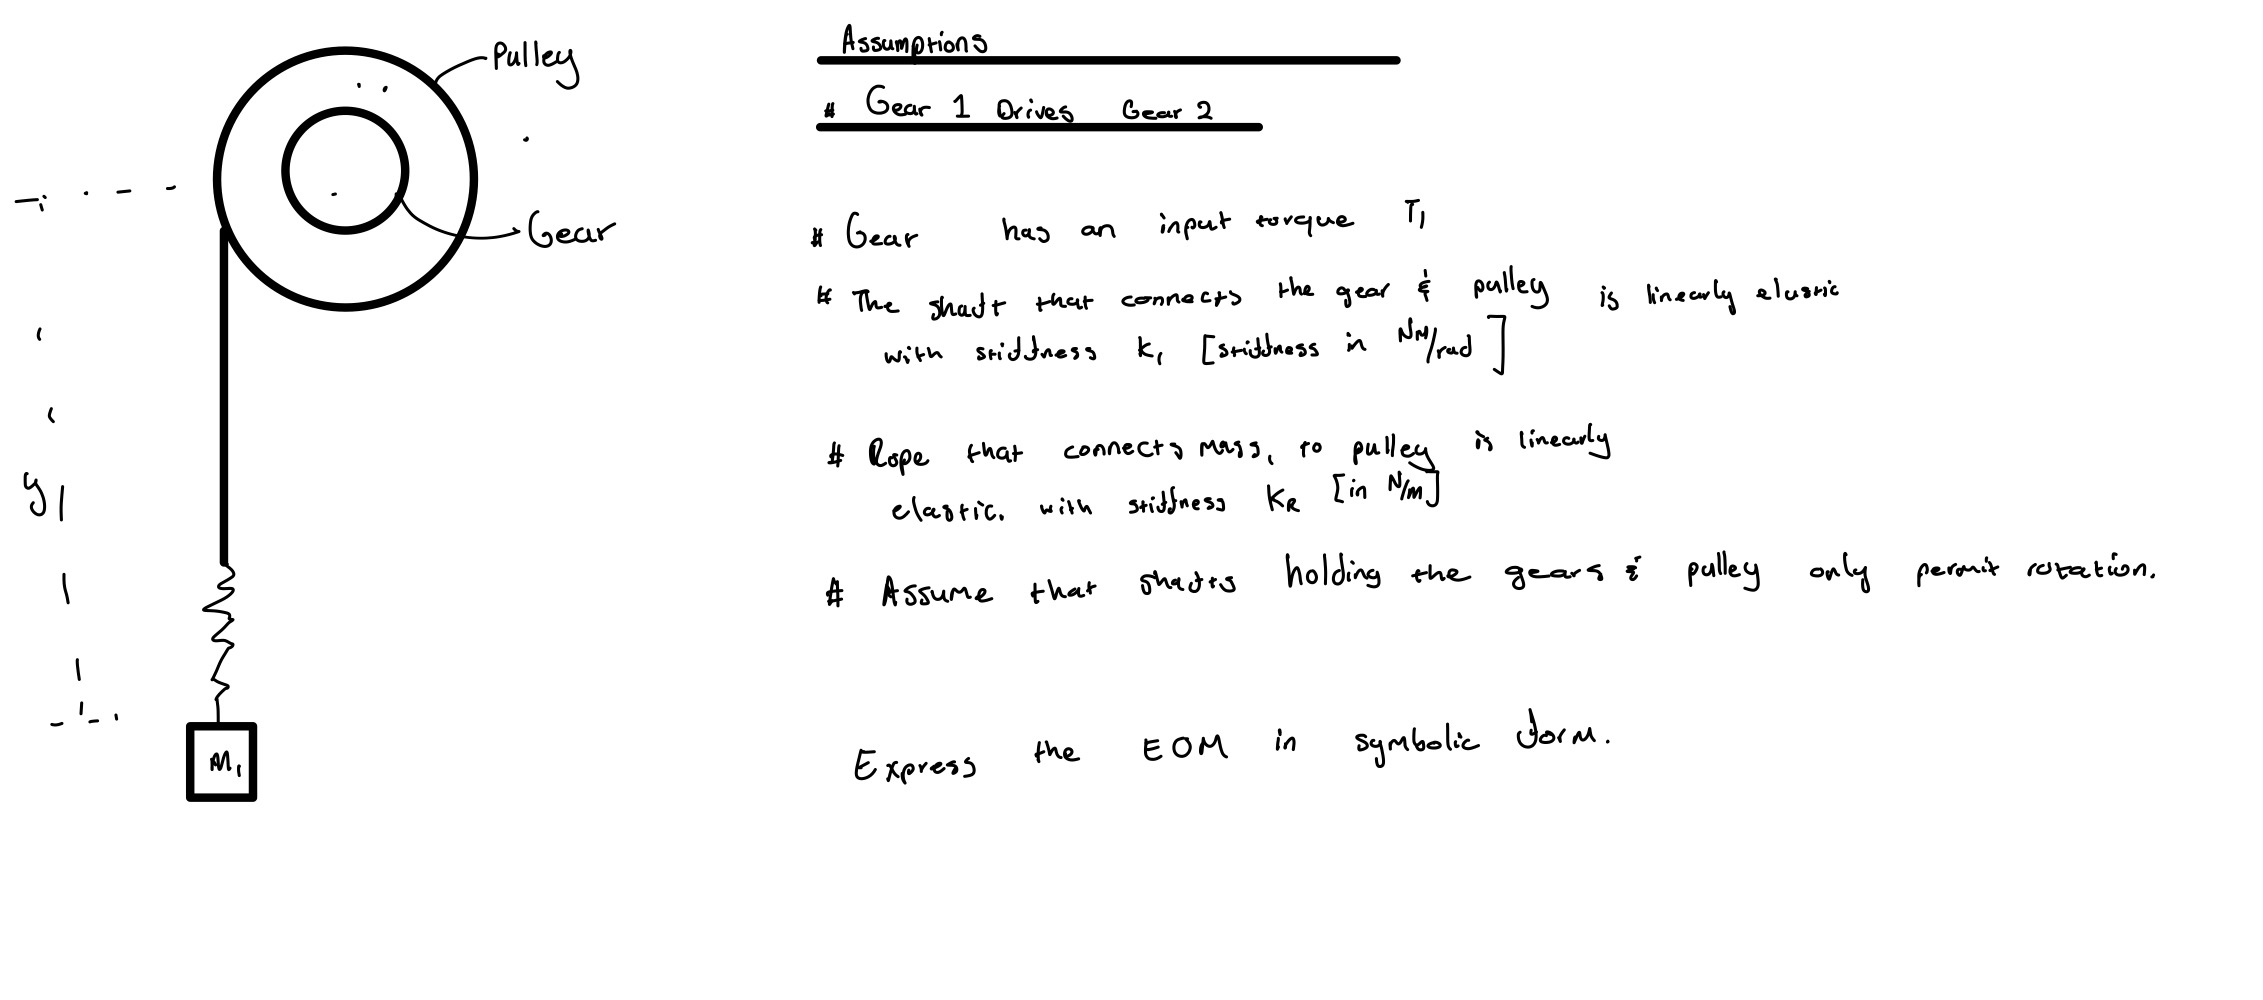 Pulley
Gear
y
M1
Assumptions
# Gear 1 Drives Gear 2
# Gear has an input torque T1
# The shaft that connects the gear & pulley is linearly elastic
with stiffness K1 [stiffness in NM/rad]
# Rope that connects mass, to pulley is linearly
elastic. with stiffness KR [in N/m]
# Assume that shafts holding the gears & pulley only permit rotation.
Express the EOM in symbolic form.